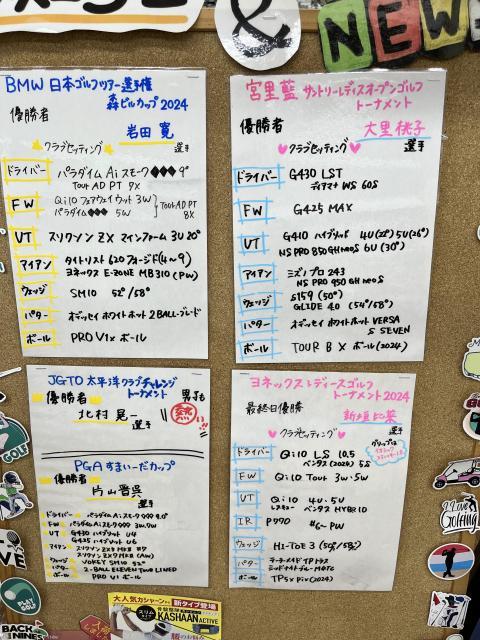 & NEW
BMW 日本ゴルフツアー選手権
森ビルカップ 2024
優勝者
岩田 寛
選手
クラブセッティング
ドライバー パラダイム Aiスモーク◆◆◆ 9°
Tour AD PT 7X
FW Qi10 フェアウェイウッド 3W
パラダイム◆◆◆ 5W
Tour AD PT 8X
UT スリクソン ZX マインファーム 3U 20°
アイアン タイトリスト 620 フォージド(4~9)
ヨネックス E-ZONE MB310 (PW)
ウェッジ SM10 52°/58°
パター オデッセイ ホワイトホット 2BALL-ブレード
ボール PRO V1x ボール
宮里藍 サントリーレディスオープンゴルフ
トーナメント
優勝者
大里桃子
選手
クラブセッティング
ドライバー G430 LST
ディアマナ WS 60S
FW G425 MAX
UT G410 ハイブリッド 4U(22°) 5U(26°)
NS PRO 850GH neo S 6U(30°)
アイアン ミズノプロ 243
NS PRO 950GH neo S
ウェッジ S159 (50°)
GLIDE 4.0 (54°/58°)
パター オデッセイ ホワイトホット VERSA
S SEVEN
ボール TOUR B X ボール(2024)
JGTO 太平洋クラブチャレンジ
トーナメント
優勝者
北村 晃一
選手
男子も
熱い!!
PGA すまいーだカップ
優勝者
片山晋呉
選手
ドライバー パラダイム Aiスモーク◆◆◆ 9.0°
FW パラダイム Aiスモーク◆◆◆ 3W, 7W
UT G430 ハイブリッド U4
G425 ハイブリッド U6
アイアン スリクソン ZX5 MKⅡ #7
スリクソン ZX7 MKⅡ (AW)
ウェッジ VOKEY SM10 52°
パター 2-BALL ELEVEN TOUR LINED
ボール PRO V1 ボール
ヨネックスレディースゴルフ
トーナメント2024
最終日優勝
新垣比菜
選手
クラブセッティング
ドライバー Qi10 LS 10.5
ベンタス(2024) 5S
FW Qi10 Tour 3W・5W
UT Qi10 4U・5U
ベンタス HYBRID
IR P770 #6~PW
ウェッジ HI-TOE 3 (50°/58°)
パター テーラーメイド TP トラス
ボール TP5x Pix(2024)
GOLF
PLAY GOLF
BACK
NINES
I Love Golfing
大人気カシャーンに新タイプ登場
スリムタイプ
KASHAAN ACTIVE